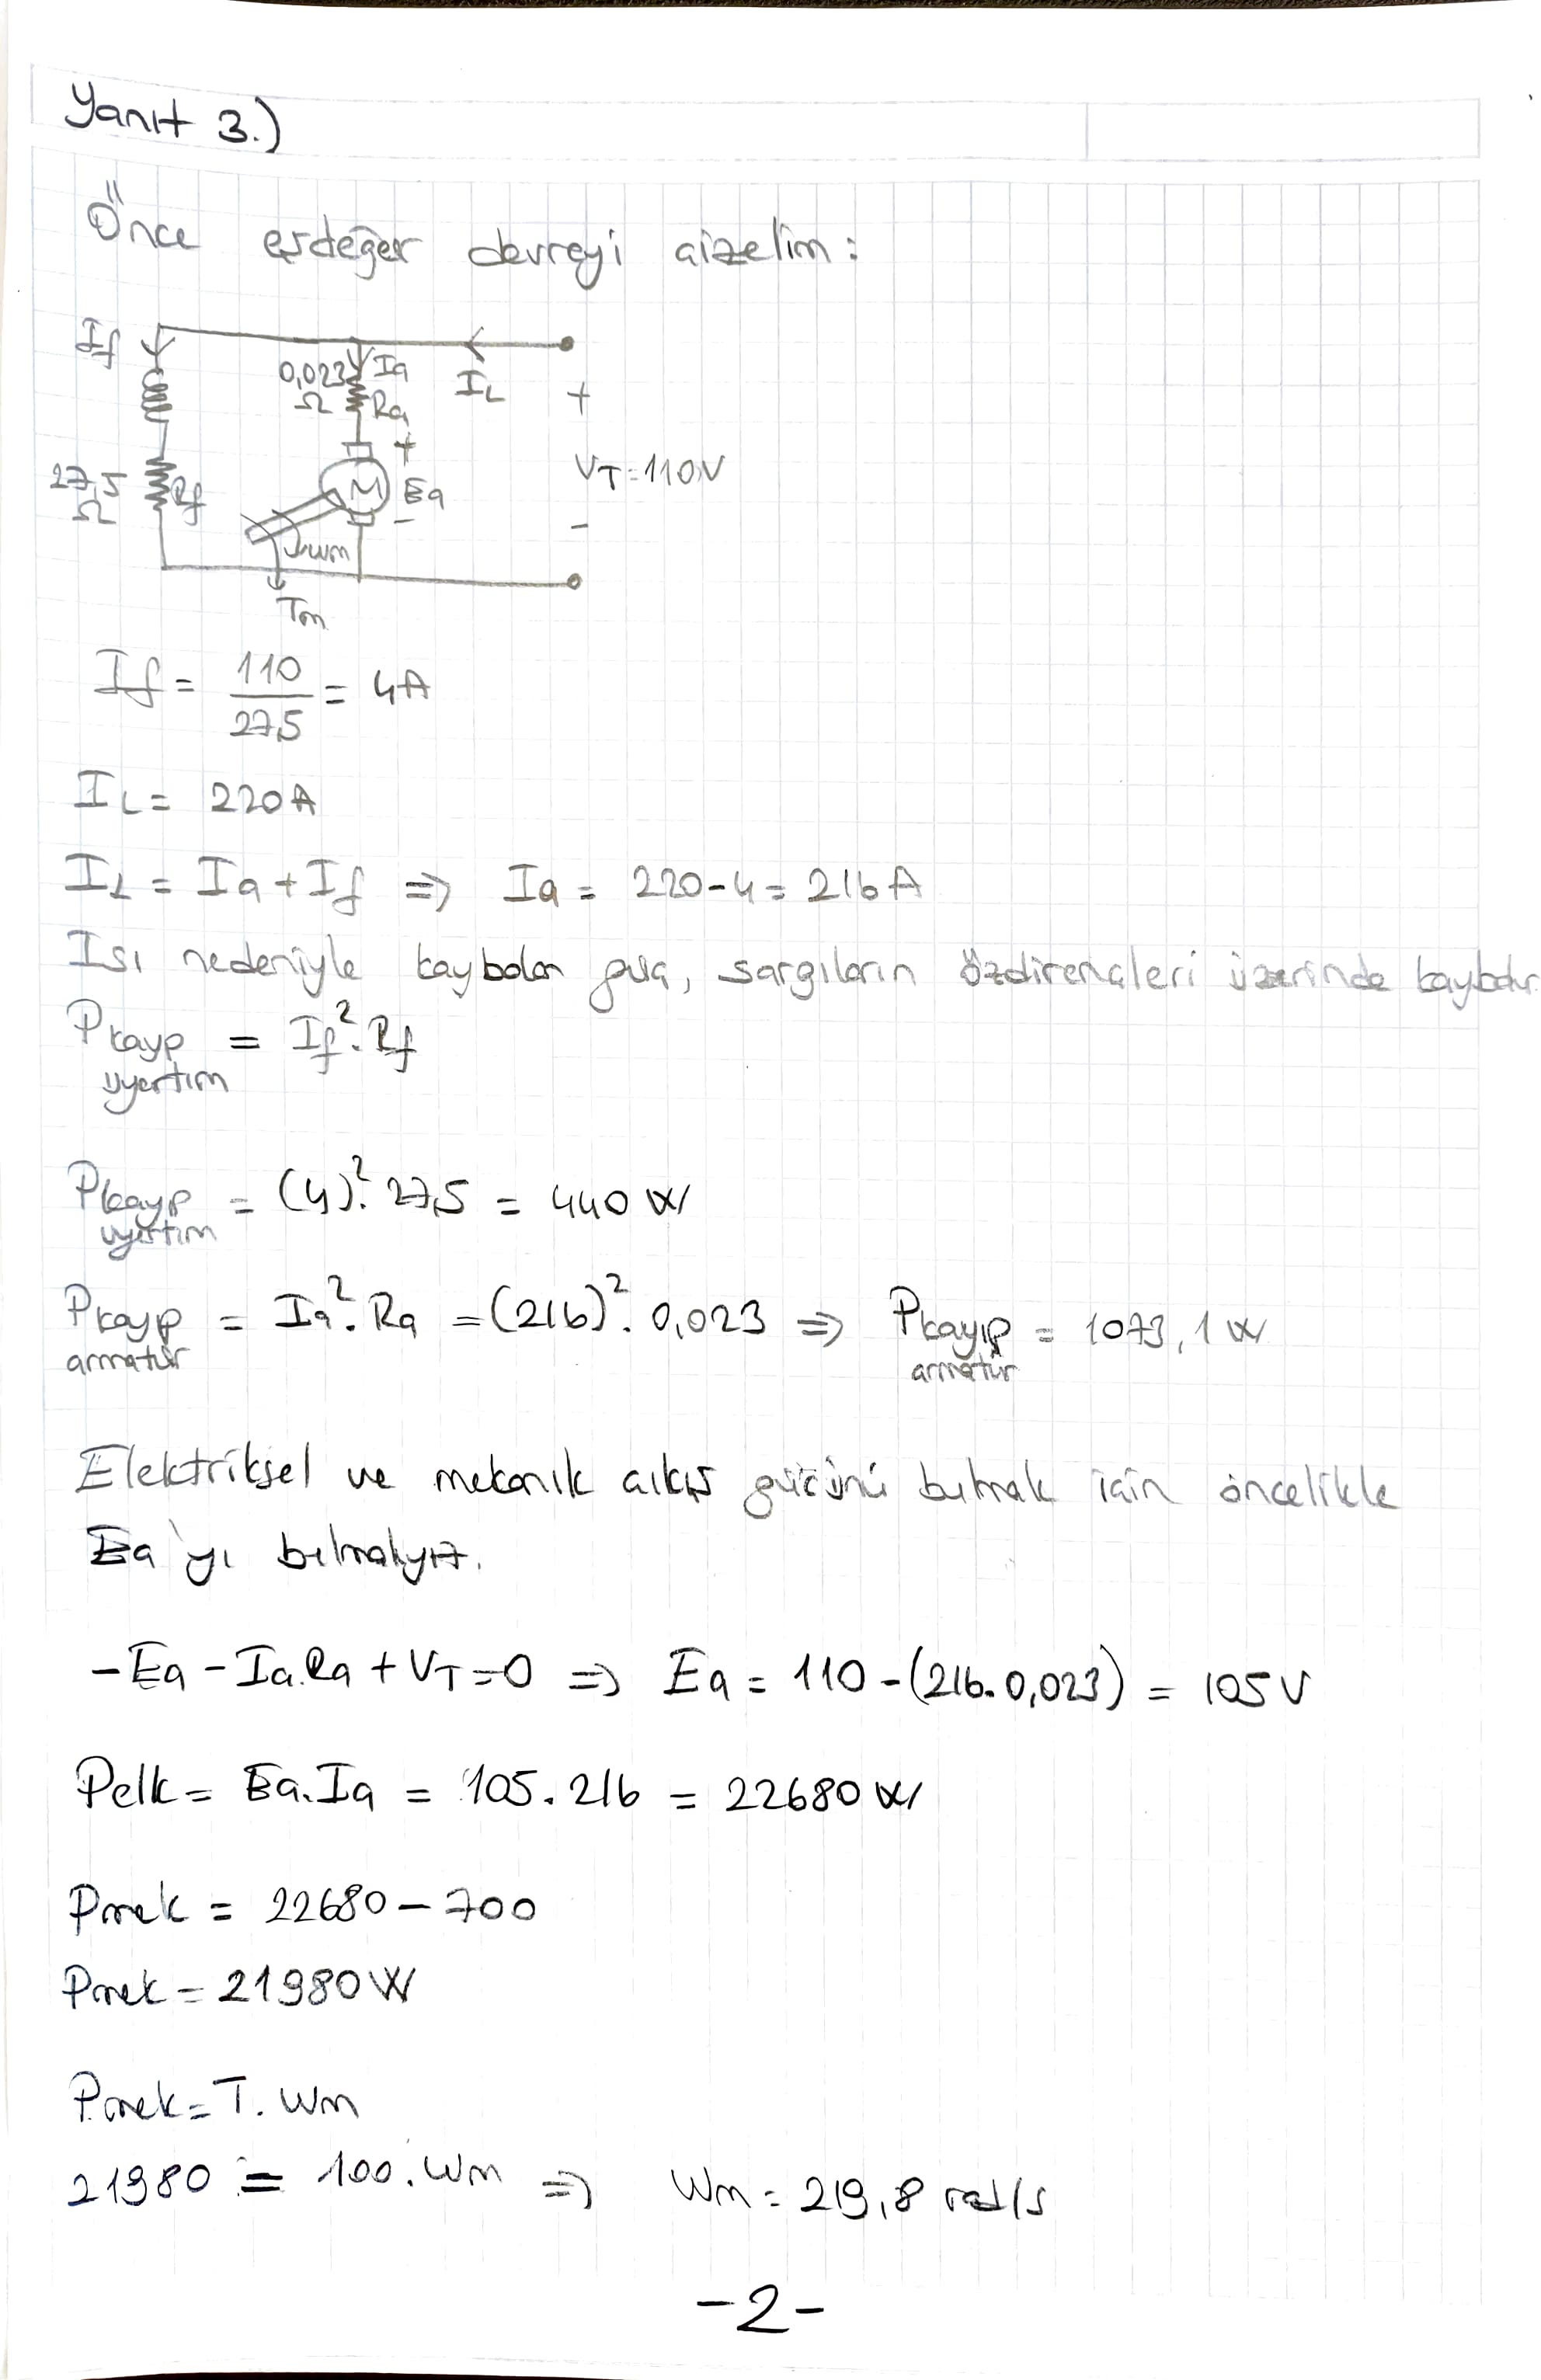 Yanıt 3.)
Önce eşdeğer devreyi çizelim:
If
0,023 Ω Ia
Ra
IL
+
VT=110V
-
27,5 Ω Rf
M
+
Ea
-
wm
Tm
If = 110/27,5 = 4A
IL = 220A
IL = Ia + If ⇒ Ia = 220-4 = 216A
Isı nedeniyle kaybolan güç, sargıların özdirençleri üzerinde kaybolur.
Pkayıp uyartım = If². Rf
Pkayıp uyartım = (4)². 27,5 = 440 W
Pkayıp armatür = Ia². Ra = (216)². 0,023 ⇒ Pkayıp armatür = 1073,1 W
Elektriksel ve mekanik çıkış gücünü bulmak için öncelikle
Ea'yı bulmalıyız.
-Ea - Ia.Ra + VT = 0 ⇒ Ea = 110 - (216. 0,023) = 105 V
Pelk = Ea.Ia = 105. 216 = 22680 W
Pmek = 22680 - 700
Pmek = 21980 W
Pmek = T. Wm
21980 = 100. Wm ⇒ Wm = 219,8 rad/s
-2-